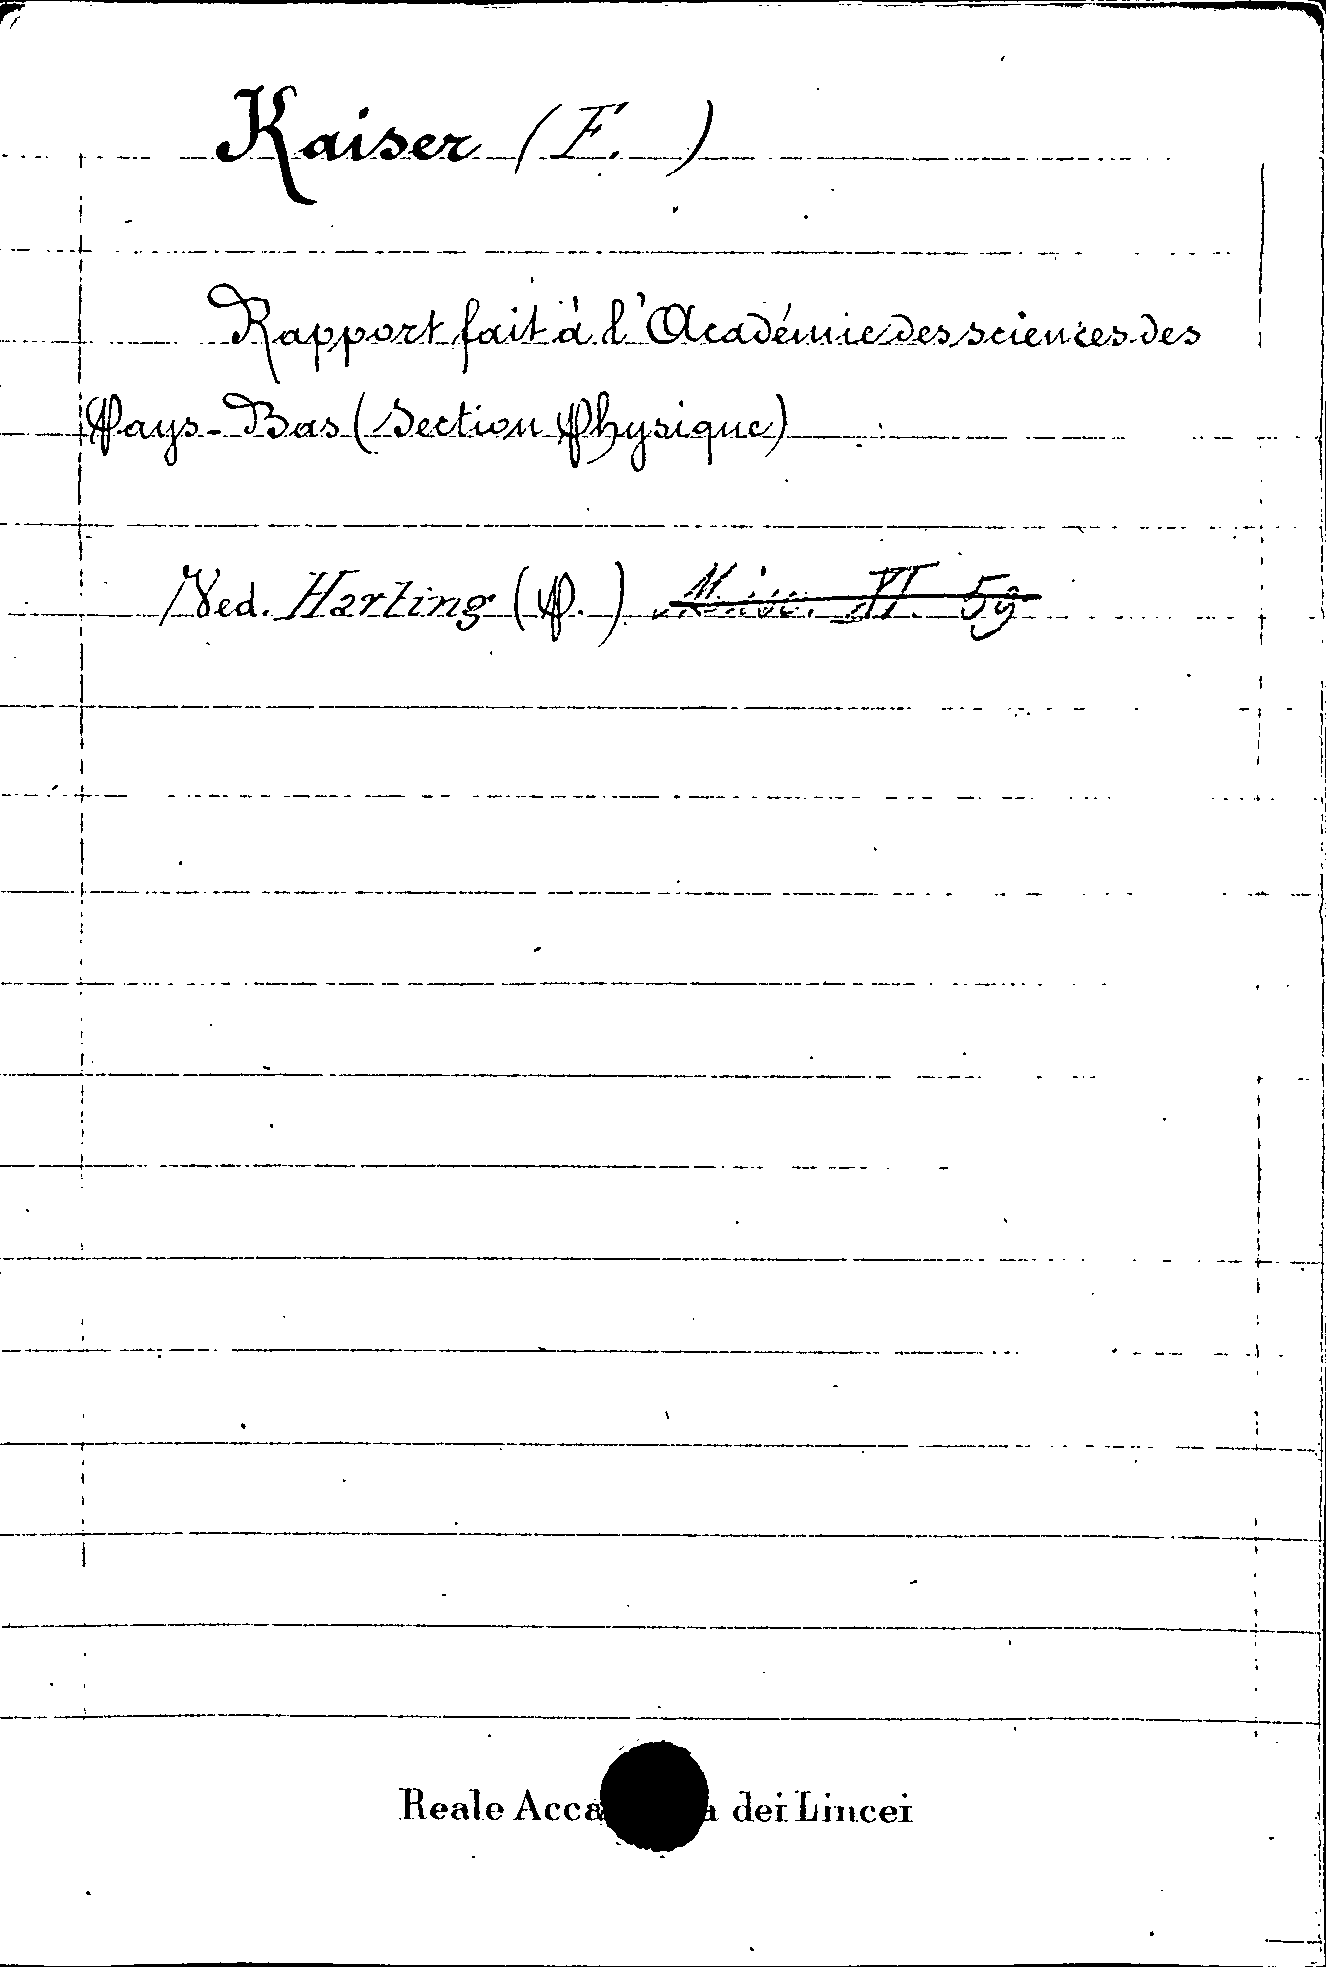 Kaiser (F. )
Rapport fait à l'Académie des sciences des
Pays-Bas (Section Physique)
Ved. Harting (P.) Misc. VI. 59
Reale Acca a dei Lincei